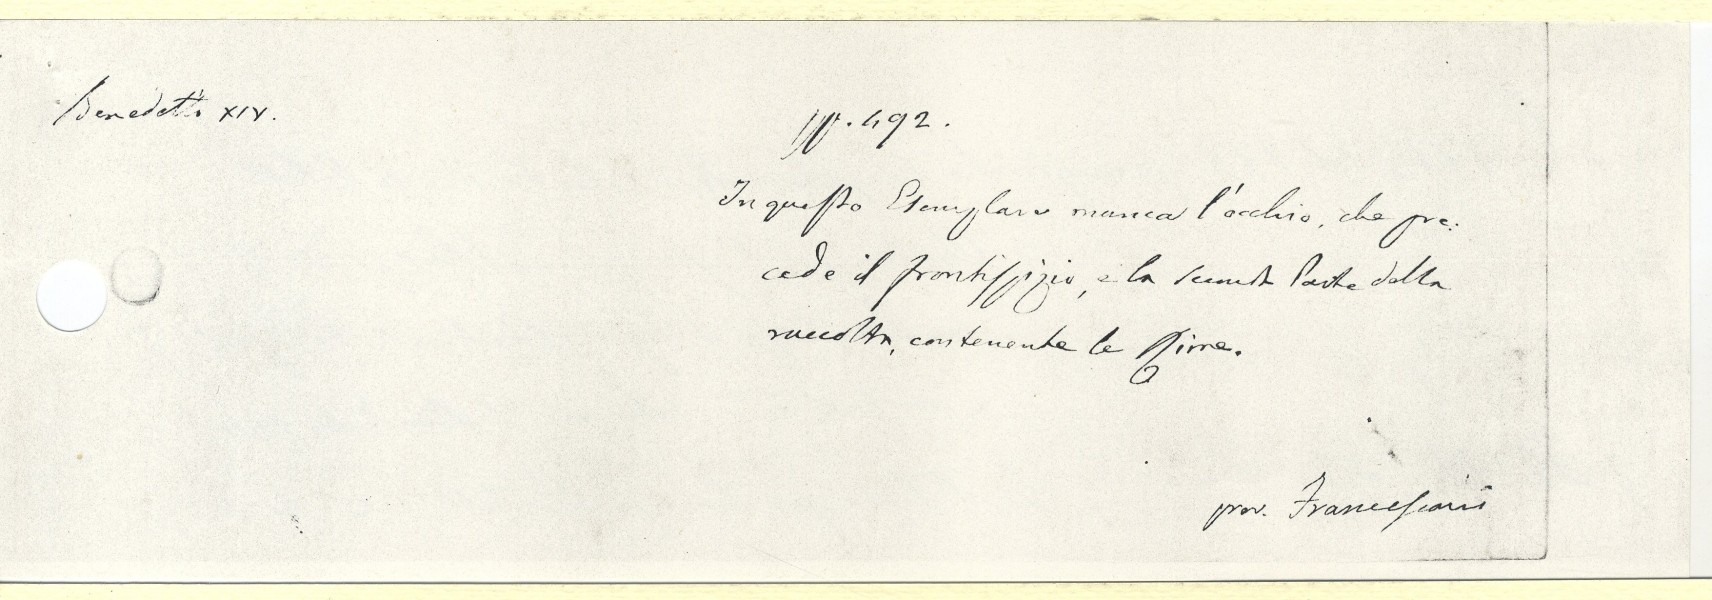 Benedetto XIV.
pp. 492.
In questo Esemplare manca l'occhio, che pre:
cede il frontispizio, e la seconda Parte della
raccolta, contenente le Rime.
prov. Francesconi